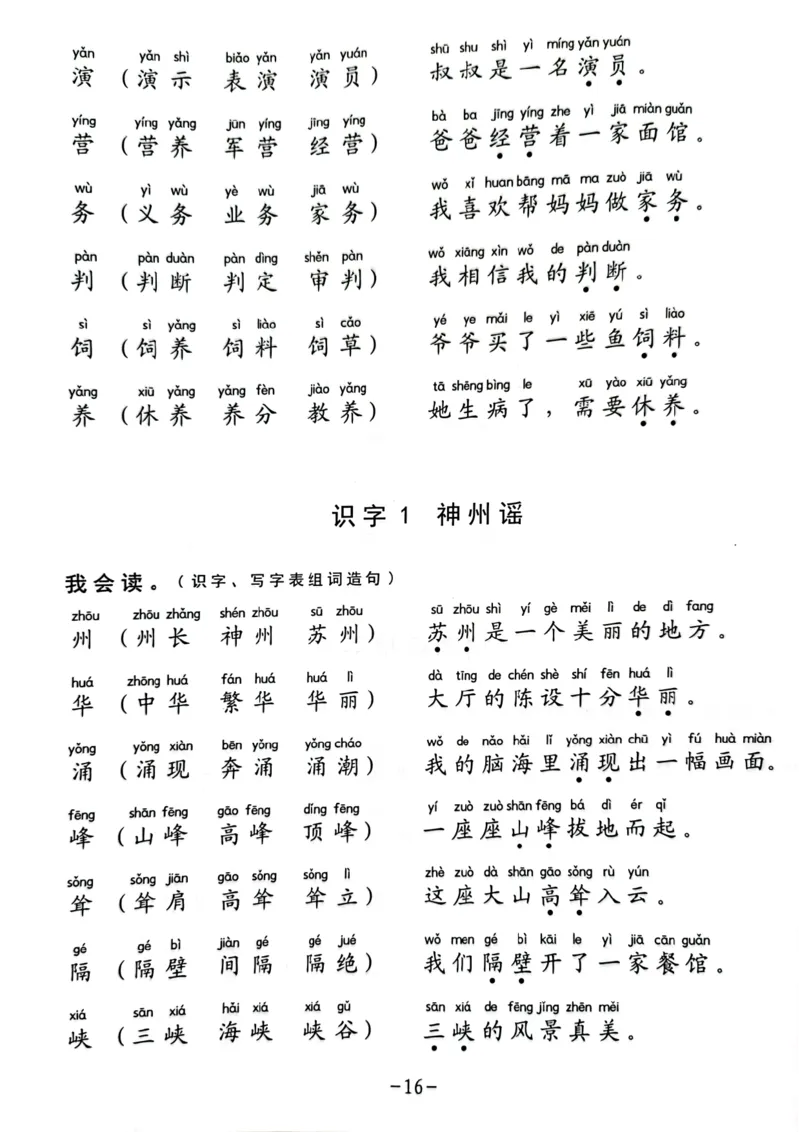 yǎn yǎn shì biǎo yǎn yǎn yuán shū shu shì yì míng yǎn yuán
演（演示 表演 演员） 叔叔是一名演员。
yíng yíng yǎng jūn yíng jīng yíng bà ba jīng yíng zhe yì jiā miàn guǎn
营（营养 军营 经营） 爸爸经营着一家面馆。
wù yì wù yè wù jiā wù wǒ xǐ huan bāng mā ma zuò jiā wù
务（义务 业务 家务） 我喜欢帮妈妈做家务。
pàn pàn duàn pàn dìng shěn pàn wǒ xiāng xìn wǒ de pàn duàn
判（判断 判定 审判） 我相信我的判断。
sì sì yǎng sì liào sì cǎo yé ye mǎi le yì xiē yú sì liào
饲（饲养 饲料 饲草） 爷爷买了一些鱼饲料。
yǎng xiū yǎng yǎng fèn jiào yǎng tā shēng bìng le xū yào xiū yǎng
养（休养 养分 教养） 她生病了，需要休养。
识字1 神州谣
我会读。（识字、写字表组词造句）
zhōu zhōu zhǎng shén zhōu sū zhōu sū zhōu shì yí gè měi lì de dì fang
州（州长 神州 苏州） 苏州是一个美丽的地方。
huá zhōng huá fán huá huá lì dà tīng de chén shè shí fēn huá lì
华（中华 繁华 华丽） 大厅的陈设十分华丽。
yǒng yǒng xiàn bēn yǒng yǒng cháo wǒ de nǎo hǎi lǐ yǒng xiàn chū yì fú huà miàn
涌（涌现 奔涌 涌潮） 我的脑海里涌现出一幅画面。
fēng shān fēng gāo fēng dǐng fēng yí zuò zuò shān fēng bá dì ér qǐ
峰（山峰 高峰 顶峰） 一座座山峰拔地而起。
sǒng sǒng jiān gāo sǒng sǒng lì zhè zuò dà shān gāo sǒng rù yún
耸（耸肩 高耸 耸立） 这座大山高耸入云。
gé gé bì jiàn gé gé jué wǒ men gé bì kāi le yì jiā cān guǎn
隔（隔壁 间隔 隔绝） 我们隔壁开了一家餐馆。
xiá sān xiá hǎi xiá xiá gǔ sān xiá de fēng jǐng zhēn měi
峡（三峡 海峡 峡谷） 三峡的风景真美。
-16-